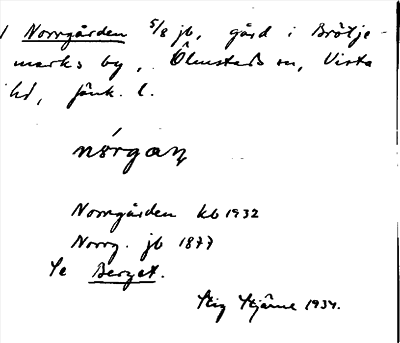 Norrgården 5/8 jb, gård i Brötje-
marks by, Ölmstads sn, Vista
hd, Jönk. l.
nórgaṇ
Norrgården kb 1932
Norrg. jb 1877
Se Berget.
Stig Stjärne 1934.